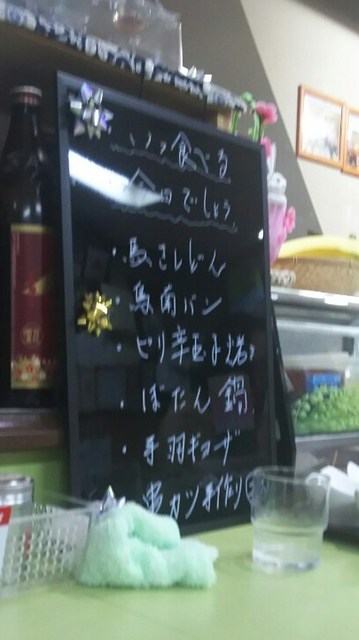 いつ食べる
今日でしょう
・馬さしどん
・馬南バン
・ピリ辛玉子焼き
・ぼたん鍋
・手羽ギョーザ
串カツ手作り